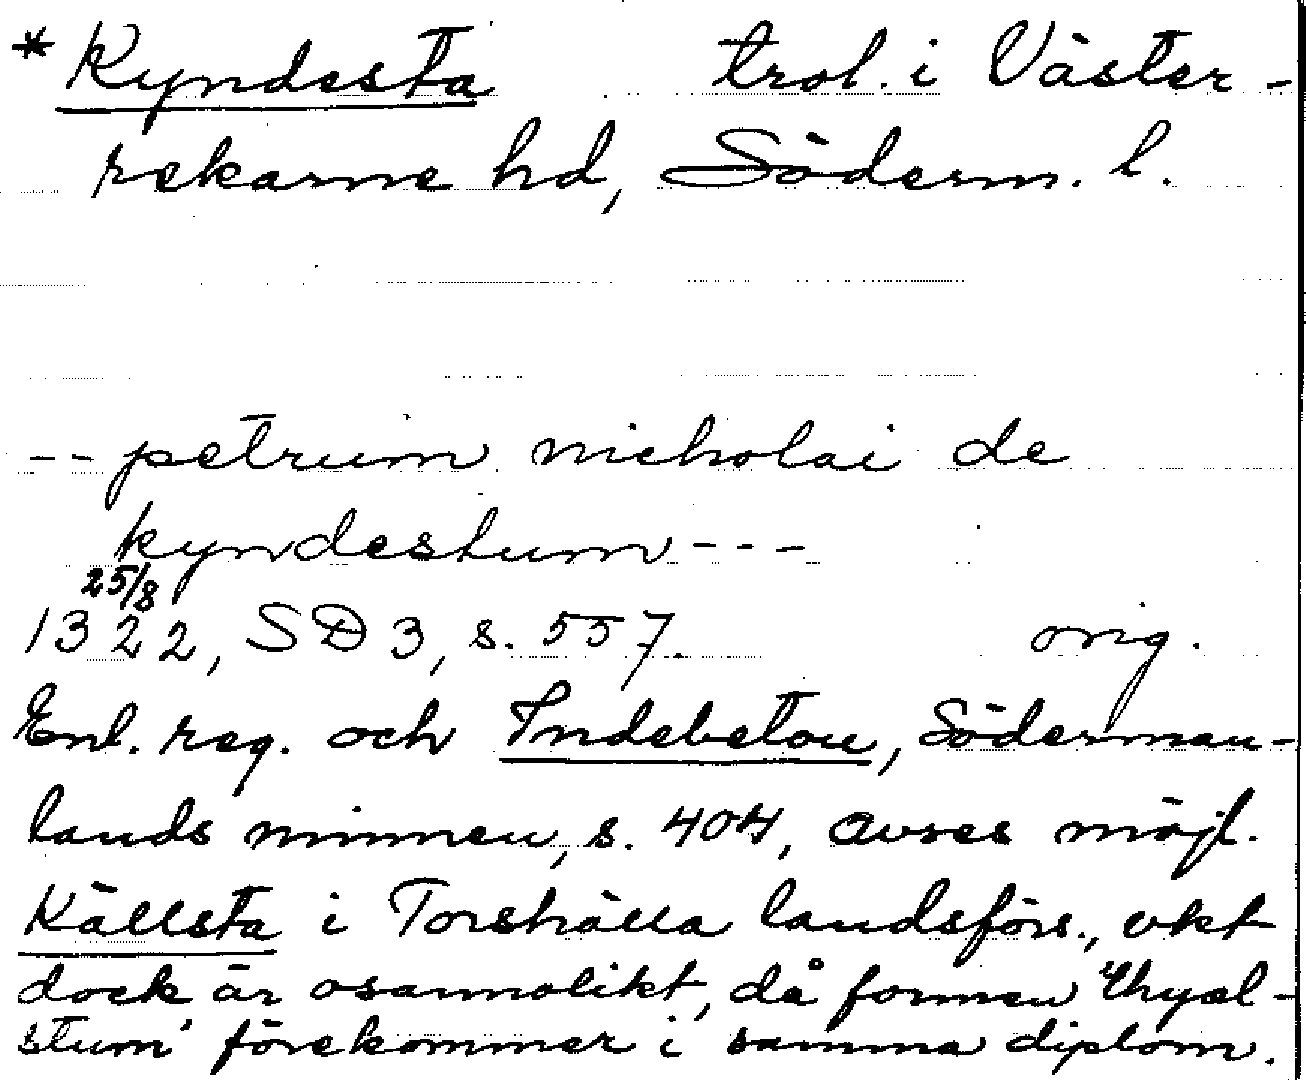 * Kyndesta trol. i Väster-
rekarne hd, Söderm. l.
-- petrum nicholai de
kyndestum ---
25/8
1322, SD 3, s. 557. orig.
Enl. reg. och Indebetou, Söderman-
lands minnen, s. 404, avses möjl.
Källsta i Torshälla landsförs., vkt
dock är osannolikt, då formen "thyæl-
stum" förekommer i samma diplom.